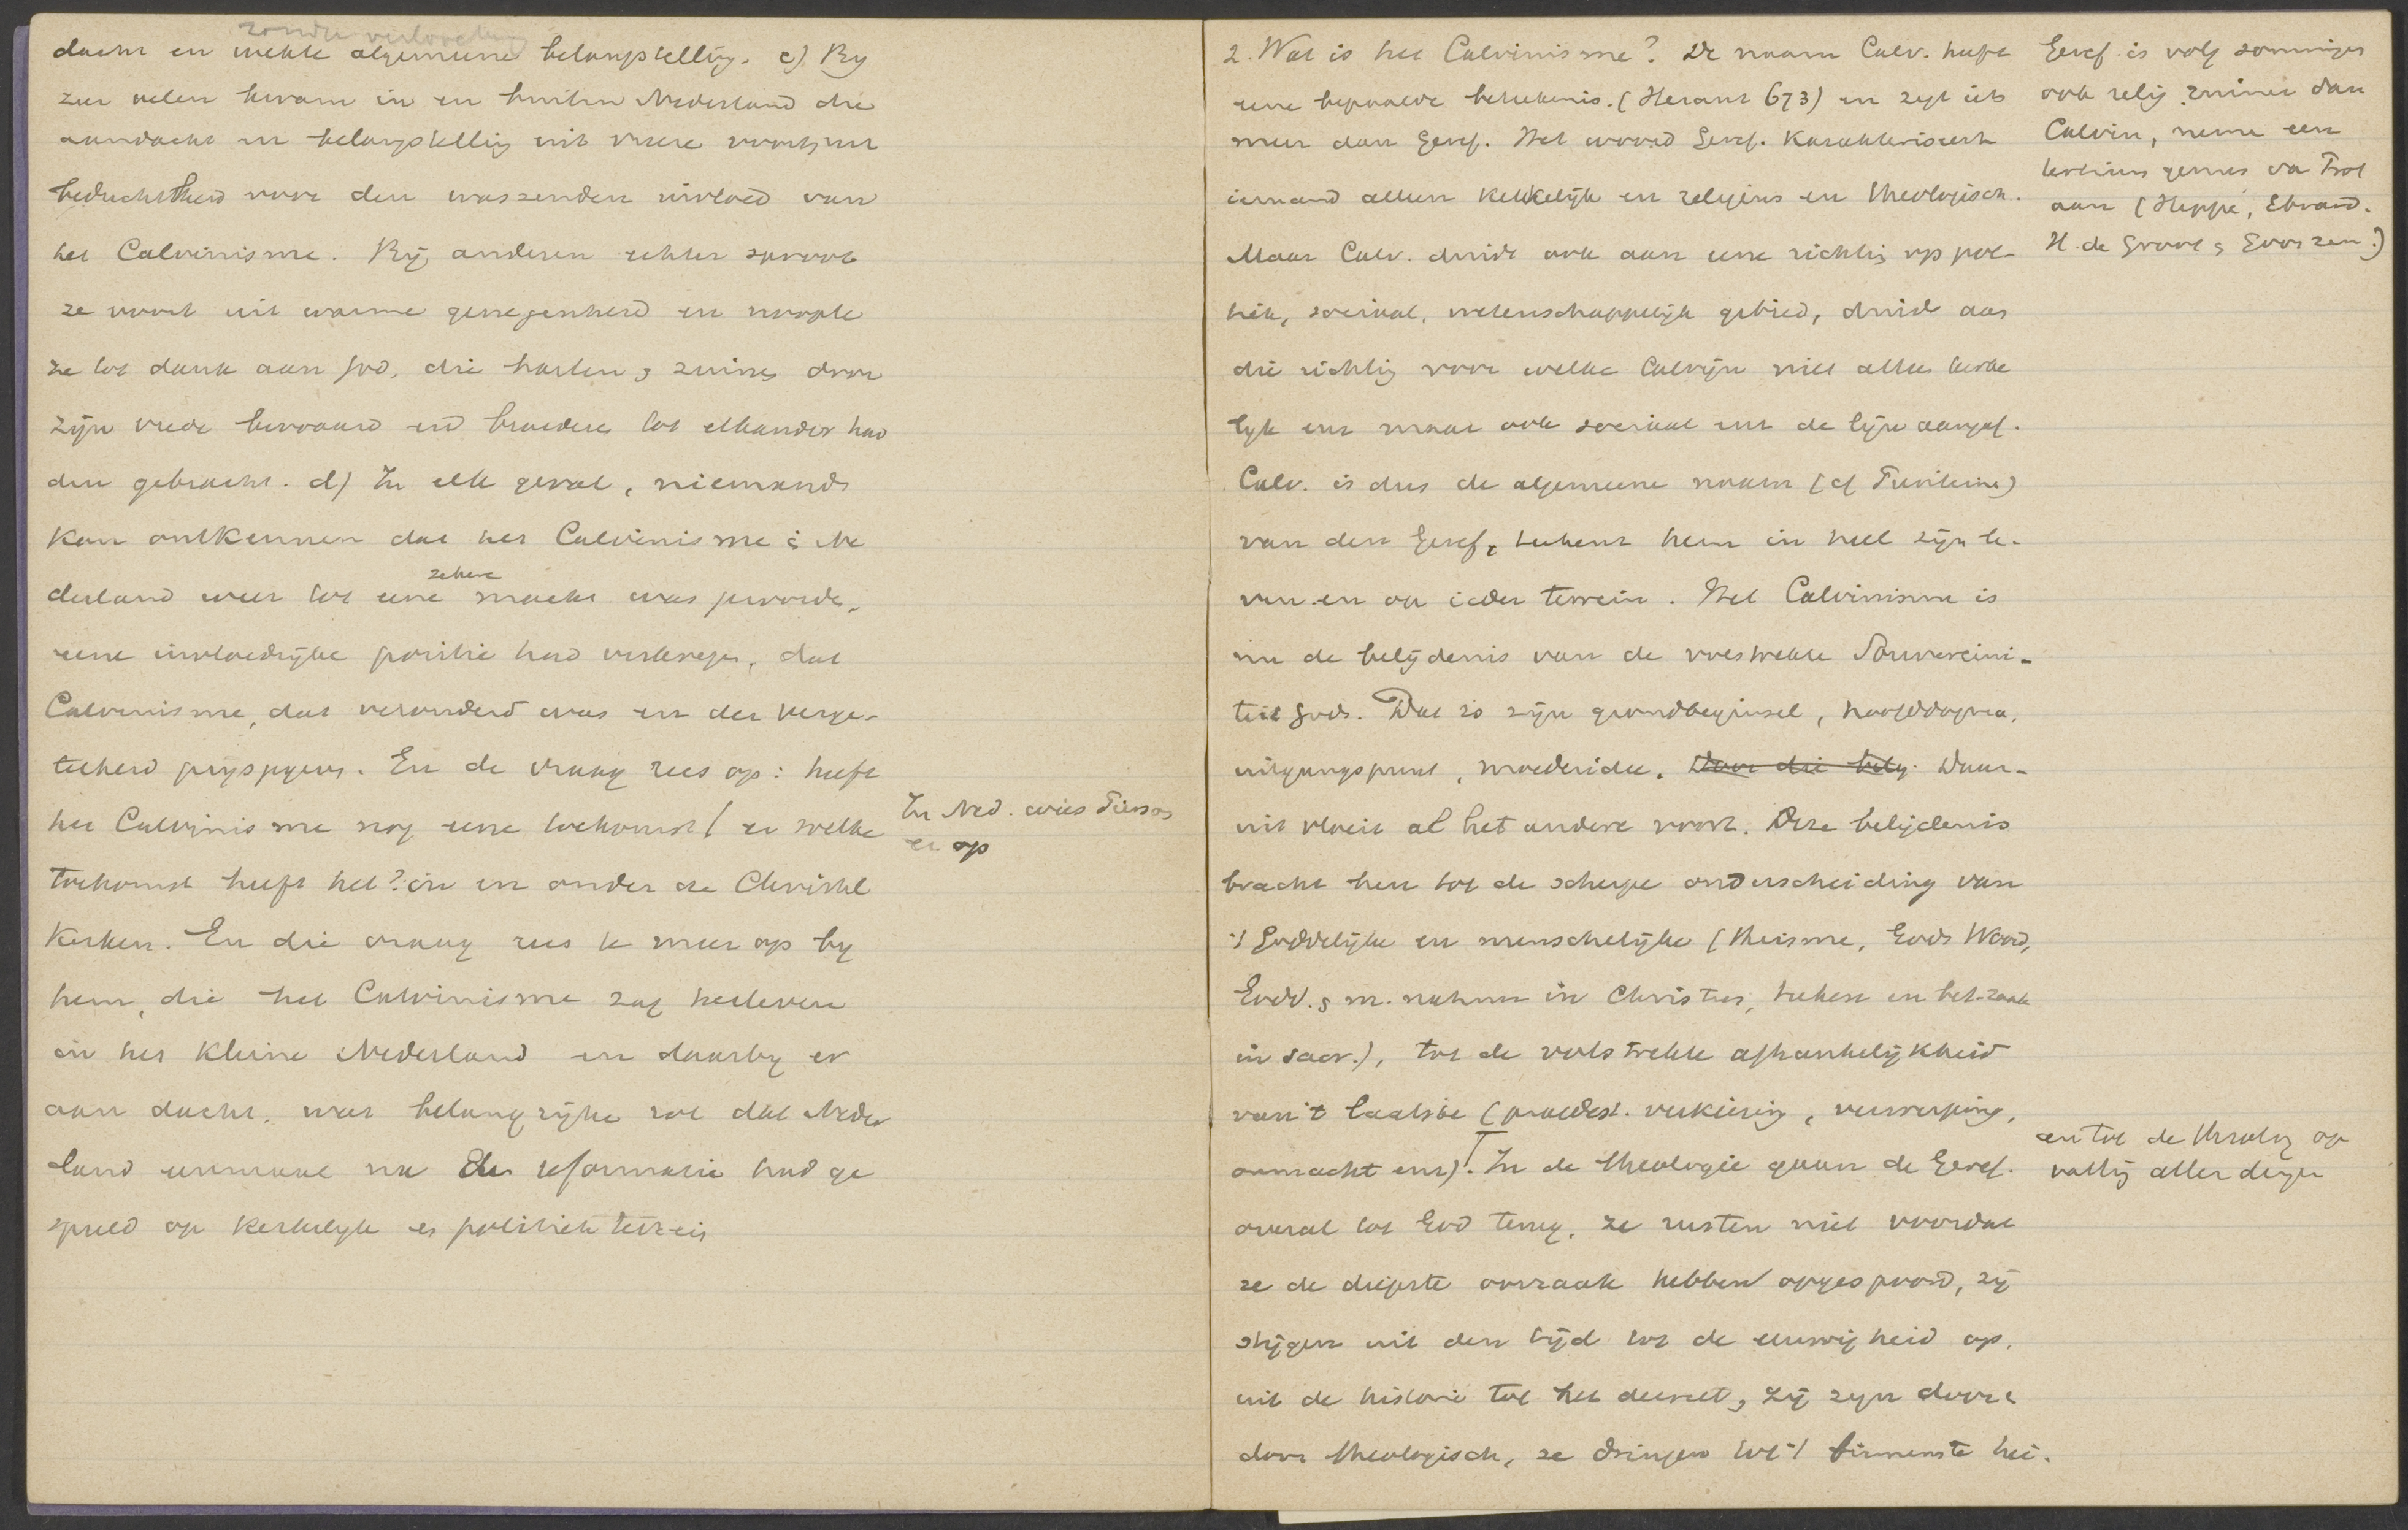 dacht en wekte algemeene belangstelling. c) By
zeer velen kwam in en buiten Nederland die
aandacht en belangstelling uit vreeze voort, uit
beduchtheid voor den wassenden invloed van
het Calvinisme. Bij anderen echter sproot
ze voort uit warme genegenheid en noopte
ze tot dank aan God, die harten & zinnen door
zijn vrede bewaard en broeders tot elkander had
den gebracht. d) In elk geval, niemand
kan ontkennen dat het Calvinisme in Ne
derland weer tot eene zekere macht was geworden,
eene invloedrijke positie had verkregen, dat
Calvinisme, dat verouderd was en der verge-
telheid prijsgegeven. En de vraag rees op: heeft
het Calvinisme nog eene toekomst/ en welke
toekomst heeft het? in en onder de Christel
Kerken. En die vraag rees te meer op by
hem, die het Calvinisme zag herleven
in het kleine Nederland en daarby er
aan dacht, wat belangrijke rol dat Neder
land eenmaal na de reformatie had ge
speeld op kerkelyk en politiek terrein
In Ned. wies Pierson
er op
2. Wat is het Calvinisme? De naam Calv. heeft
eene bepaalde beteekenis. (Heraut 673) en zegt iets
meer dan Geref. Het woord Geref. karakteriseert
iemand alleen kerkelijk en religieus en theologisch.
Maar Calv. duidt ook aan eene richting op poli-
tiek, sociaal, wetenschappelijk gebied, duidt aan
die richting voor welke Calvijn niet alleen kerke
lyk enz maar ook sociaal enz de lijn aangaf.
Calv. is dus de algemeene naam (cf Puriteine)
van den Geref, teekent hem in heel zijn le-
ven en op ieder terrein. Het Calvinisme is
nu de belijdenis van de volstrekte Souvereini-
teit Gods. Dat is zijn grondbeginsel, hoofddogma,
uitgangspunt, moederidee. Door die bely. Daar-
uit vloeit al het andere voort. Deze belijdenis
bracht hen tot de scherpe onderscheiding van
't Goddelijke en menschelijke (theisme, Gods Woord,
Godd. & m. natuur in Christus, teeken en bet. zaak
in sacr.), tot de volstrekte afhankelijkheid
van 't laatste (praedest. verkiezing, verwerping,
onmacht enz). In de theologie gaan de Geref.
overal tot God terug, ze rusten niet voordat
ze de diepste oorzaak hebben opgespoord, zij
stijgen uit den tijd tot de eeuwigheid op,
uit de historie tot het decreet, zij zijn door &
door theologisch, ze dringen tot 't binnenste hei-
Geref. is volg sommigen
ook relig. ruimer dan
Calvin, neme een
tertium genus van Prot
aan (Heppe, Ebrard.
H. de Groot & Gooszen.)
en tot de theolog op
vatting aller dingen